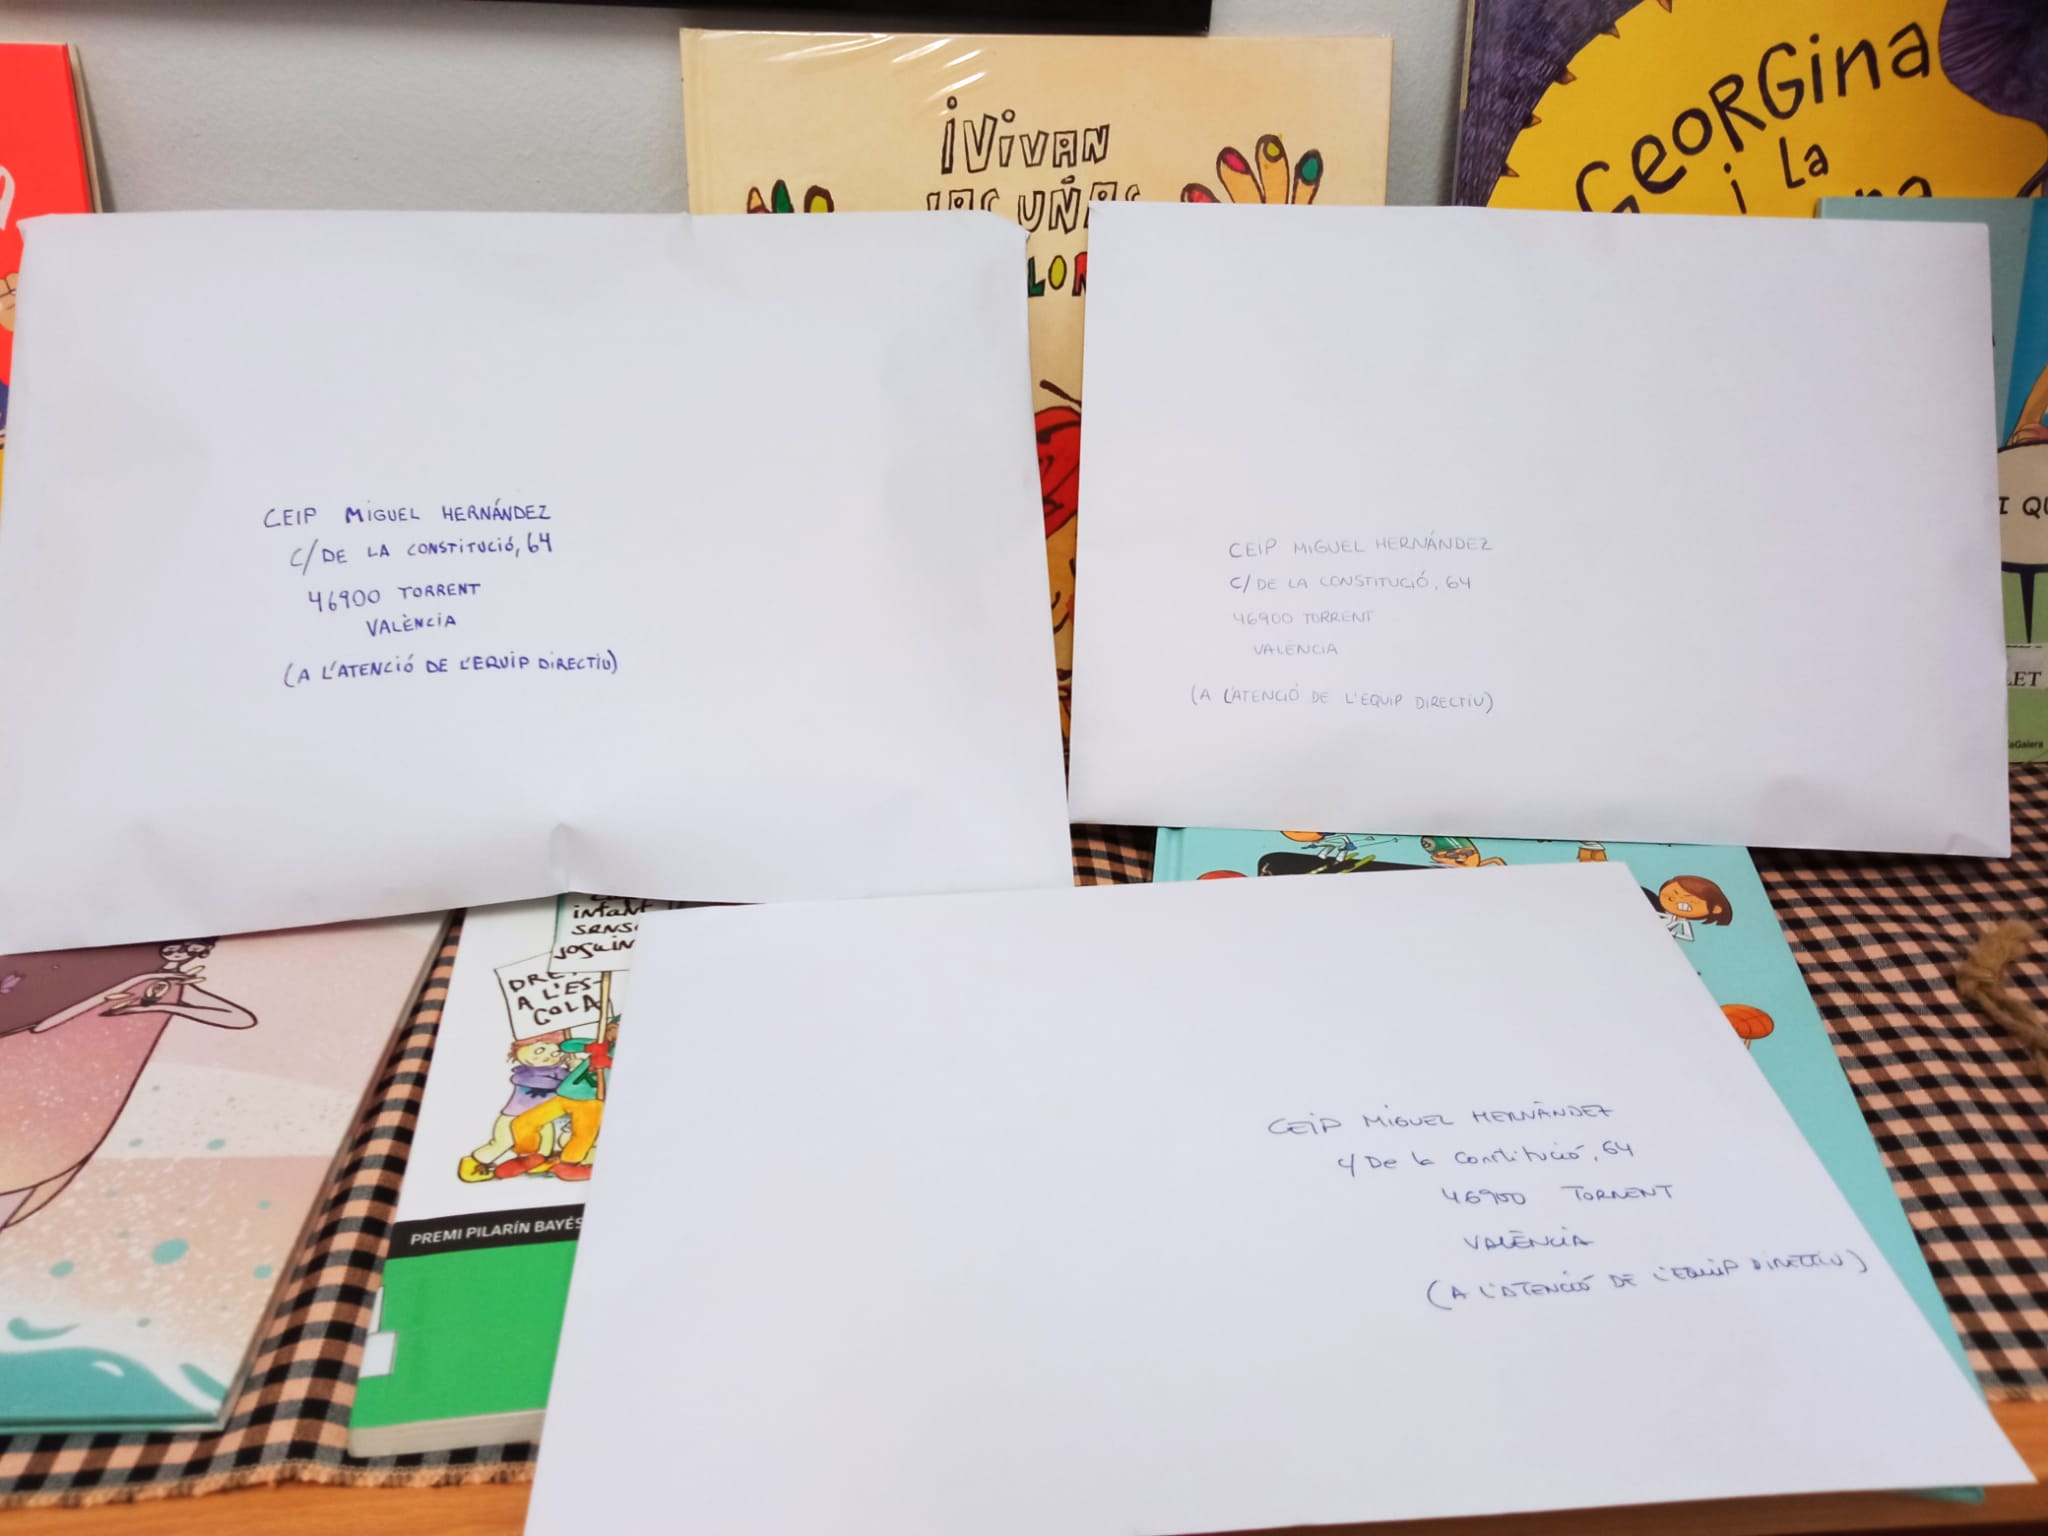 ¡VIVAN
LAS UÑAS
GEORGINA
i LA
CEIP MIGUEL HERNÁNDEZ
C/ DE LA CONSTITUCIÓ, 64
46900 TORRENT
VALÈNCIA
(A L'ATENCIÓ DE L'EQUIP DIRECTIU)
CEIP MIGUEL HERNÁNDEZ
C/ DE LA CONSTITUCIÓ, 64
46900 TORRENT
VALENCIA
(A L'ATENCIÓ DE L'EQUIP DIRECTIU)
I QU
LET
aGalera
infant
SENS
JOGUIN
DRE
A L'ES-
COLA
PREMI PILARÍN BAYÉS
CEIP MIGUEL HERNÁNDEZ
C/ De la Constitució, 64
46900 TORRENT
VALÈNCIA
(A L'ATENCIÓ DE L'EQUIP DIRECTIU)